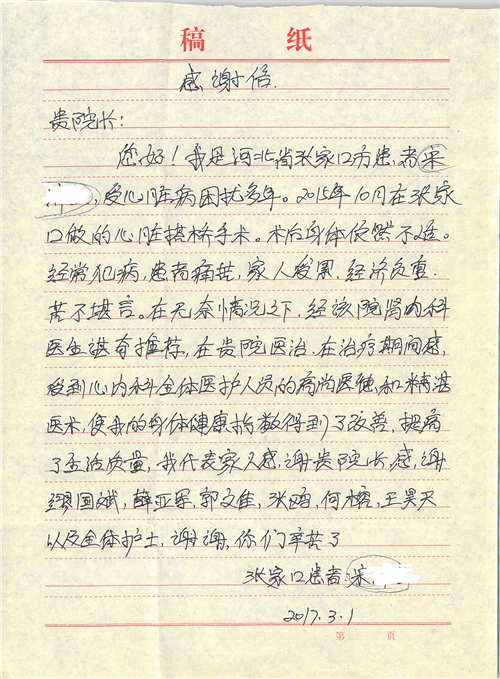 稿 纸
感谢信.
贵院长:
您好!我是河北省张家口市患者宋
,受心脏病困扰多年。2015年10月在张家
口做的心脏搭桥手术。术后身体依然不佳。
经常犯病,患者痛苦,家人受累,经济负重.
苦不堪言。在无奈情况之下,经该院肾内科
医生推荐,在贵院医治.在治疗期间感
受到心内科全体医护人员的高尚医德和精湛
医术,使我的身体健康指数得到了改善,提高
了生活质量,我代表家人感谢贵院长,感谢
缪国斌,薛亚军,郭文佳,张鸥,何榕,王昊天
以及全体护士,谢谢,你们辛苦了
张家口患者:宋
2017.3.1
第 页